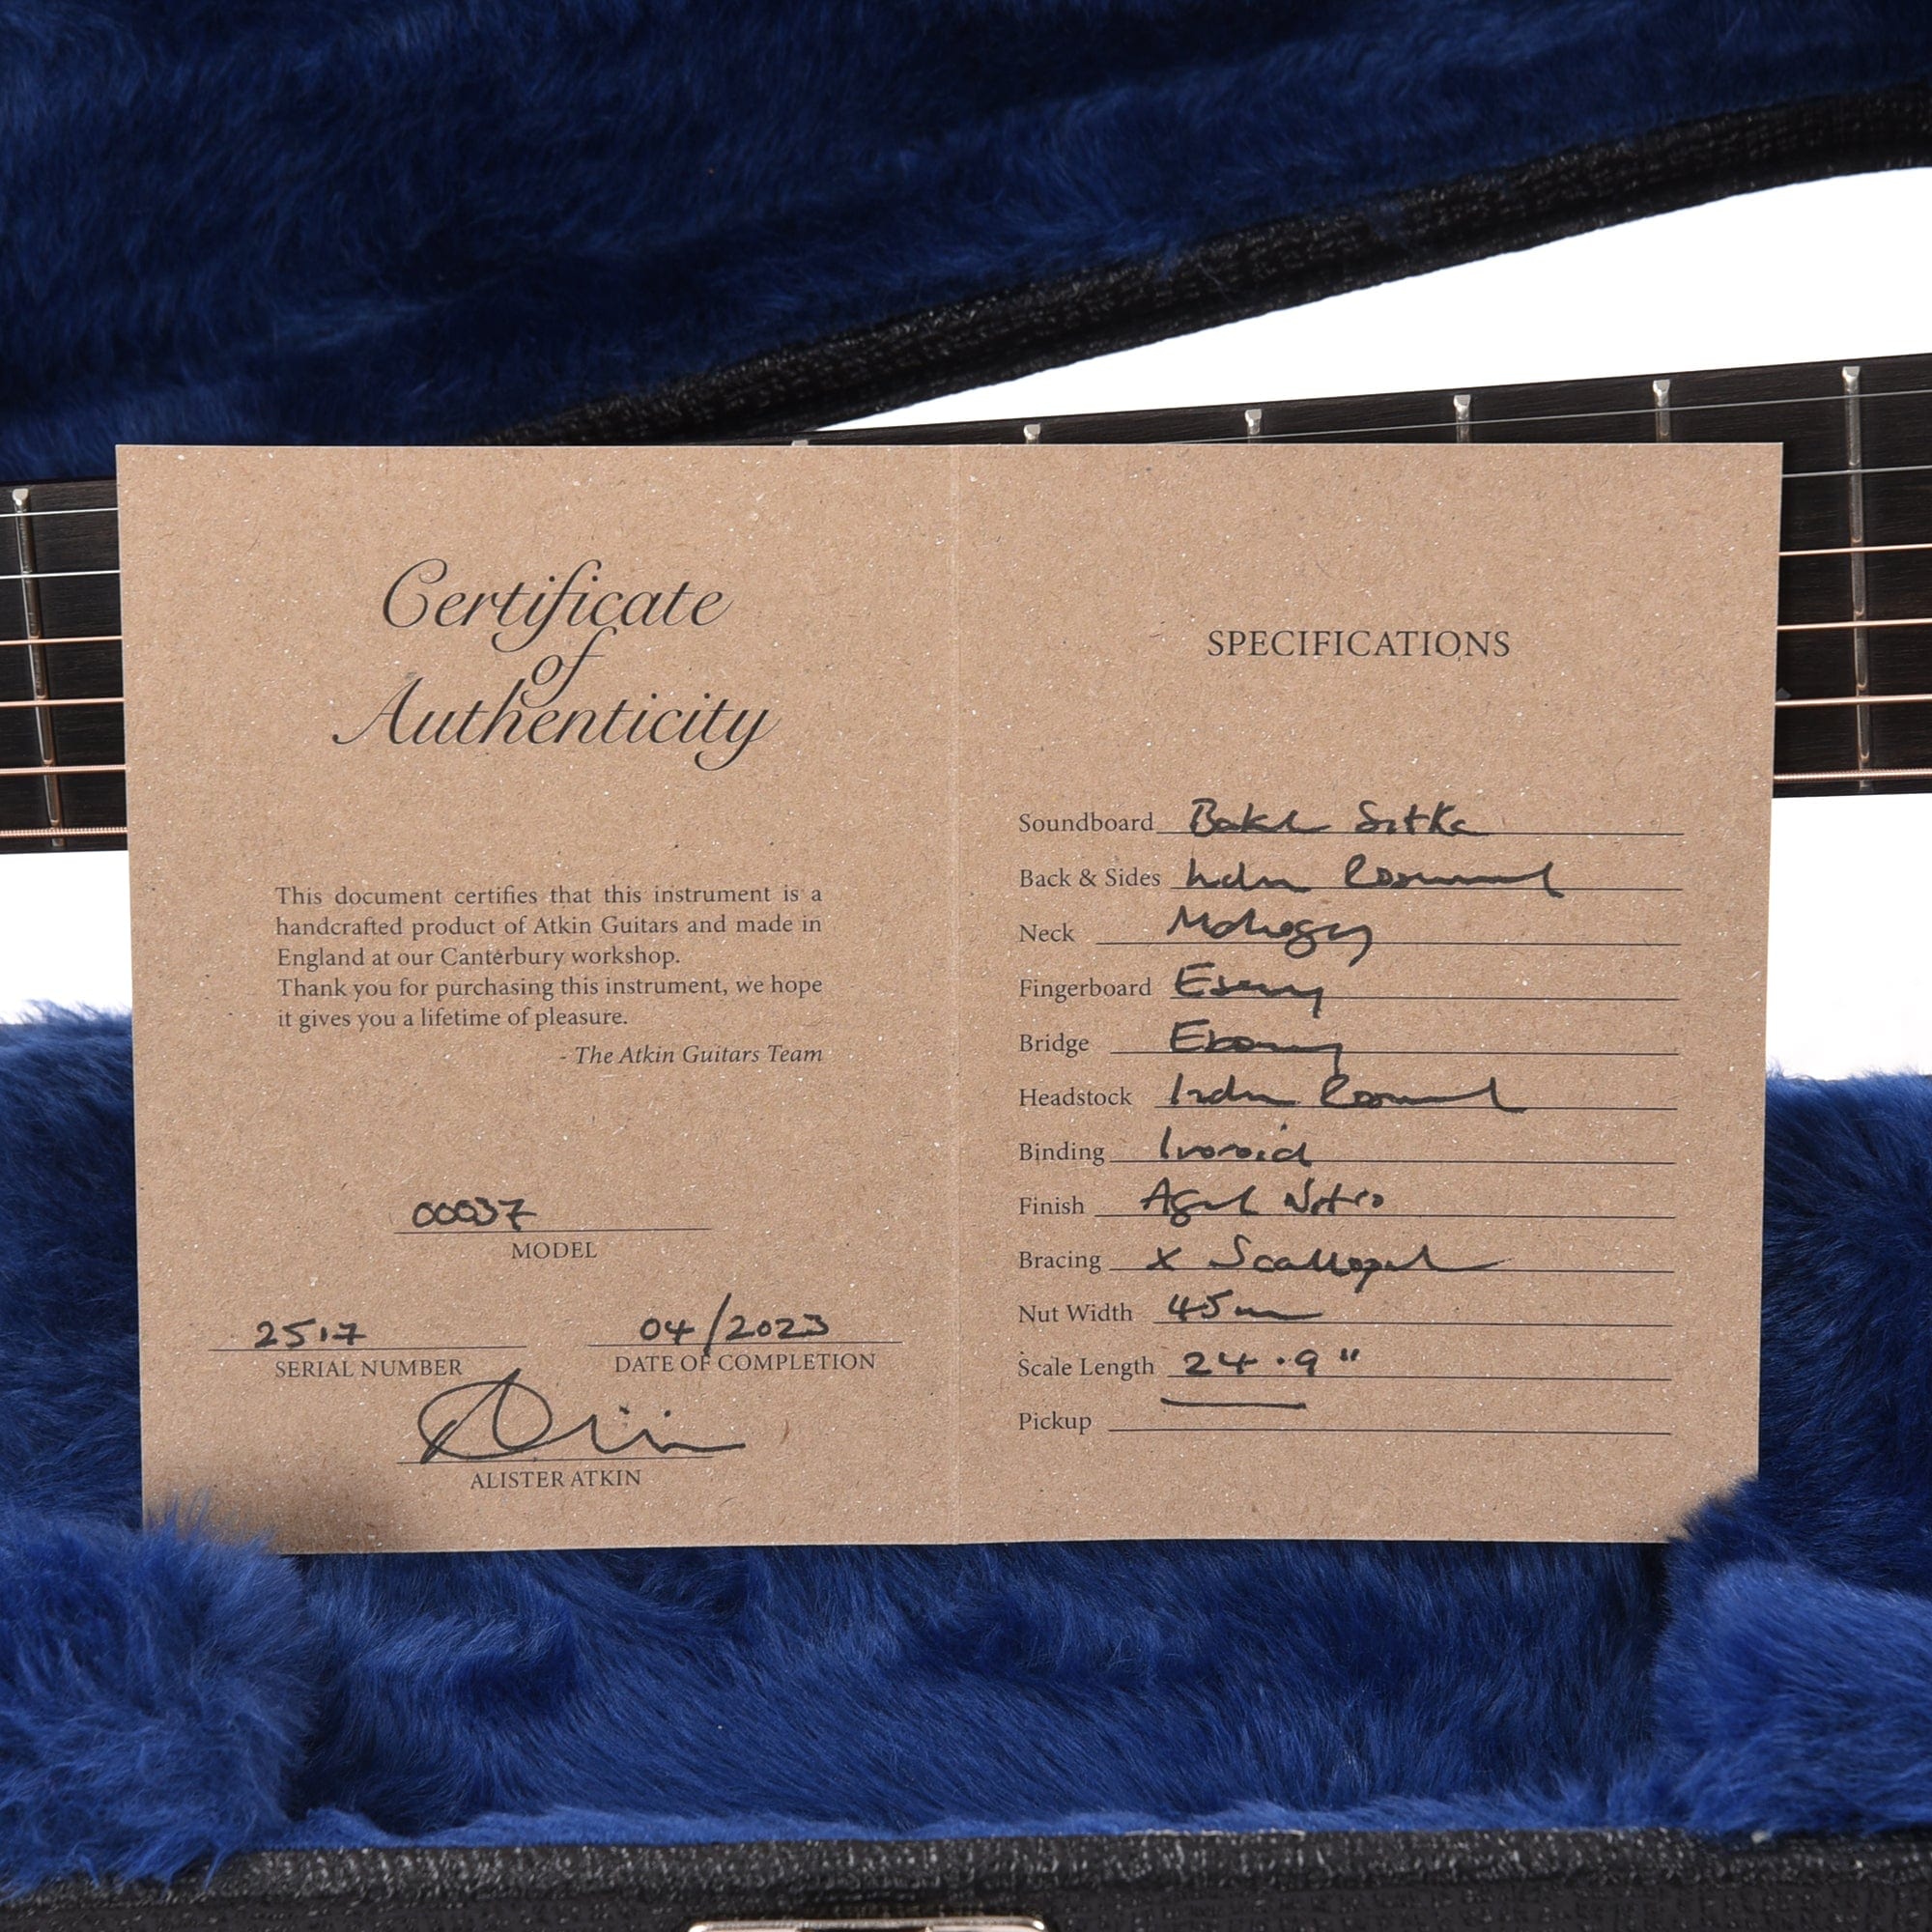 Certificate
of
Authenticity
This document certifies that this instrument is a
handcrafted product of Atkin Guitars and made in
England at our Canterbury workshop.
Thank you for purchasing this instrument, we hope
it gives you a lifetime of pleasure.
- The Atkin Guitars Team
00037
MODEL
2517
SERIAL NUMBER
04/2023
DATE OF COMPLETION
ALISTER ATKIN
SPECIFICATIONS
Soundboard Baked Sitka
Back & Sides Indian Rosewood
Neck Mahogany
Fingerboard Ebony
Bridge Ebony
Headstock Indian Rosewood
Binding Ivoroid
Finish Aged Nitro
Bracing X Scalloped
Nut Width 45mm
Scale Length 24.9"
Pickup